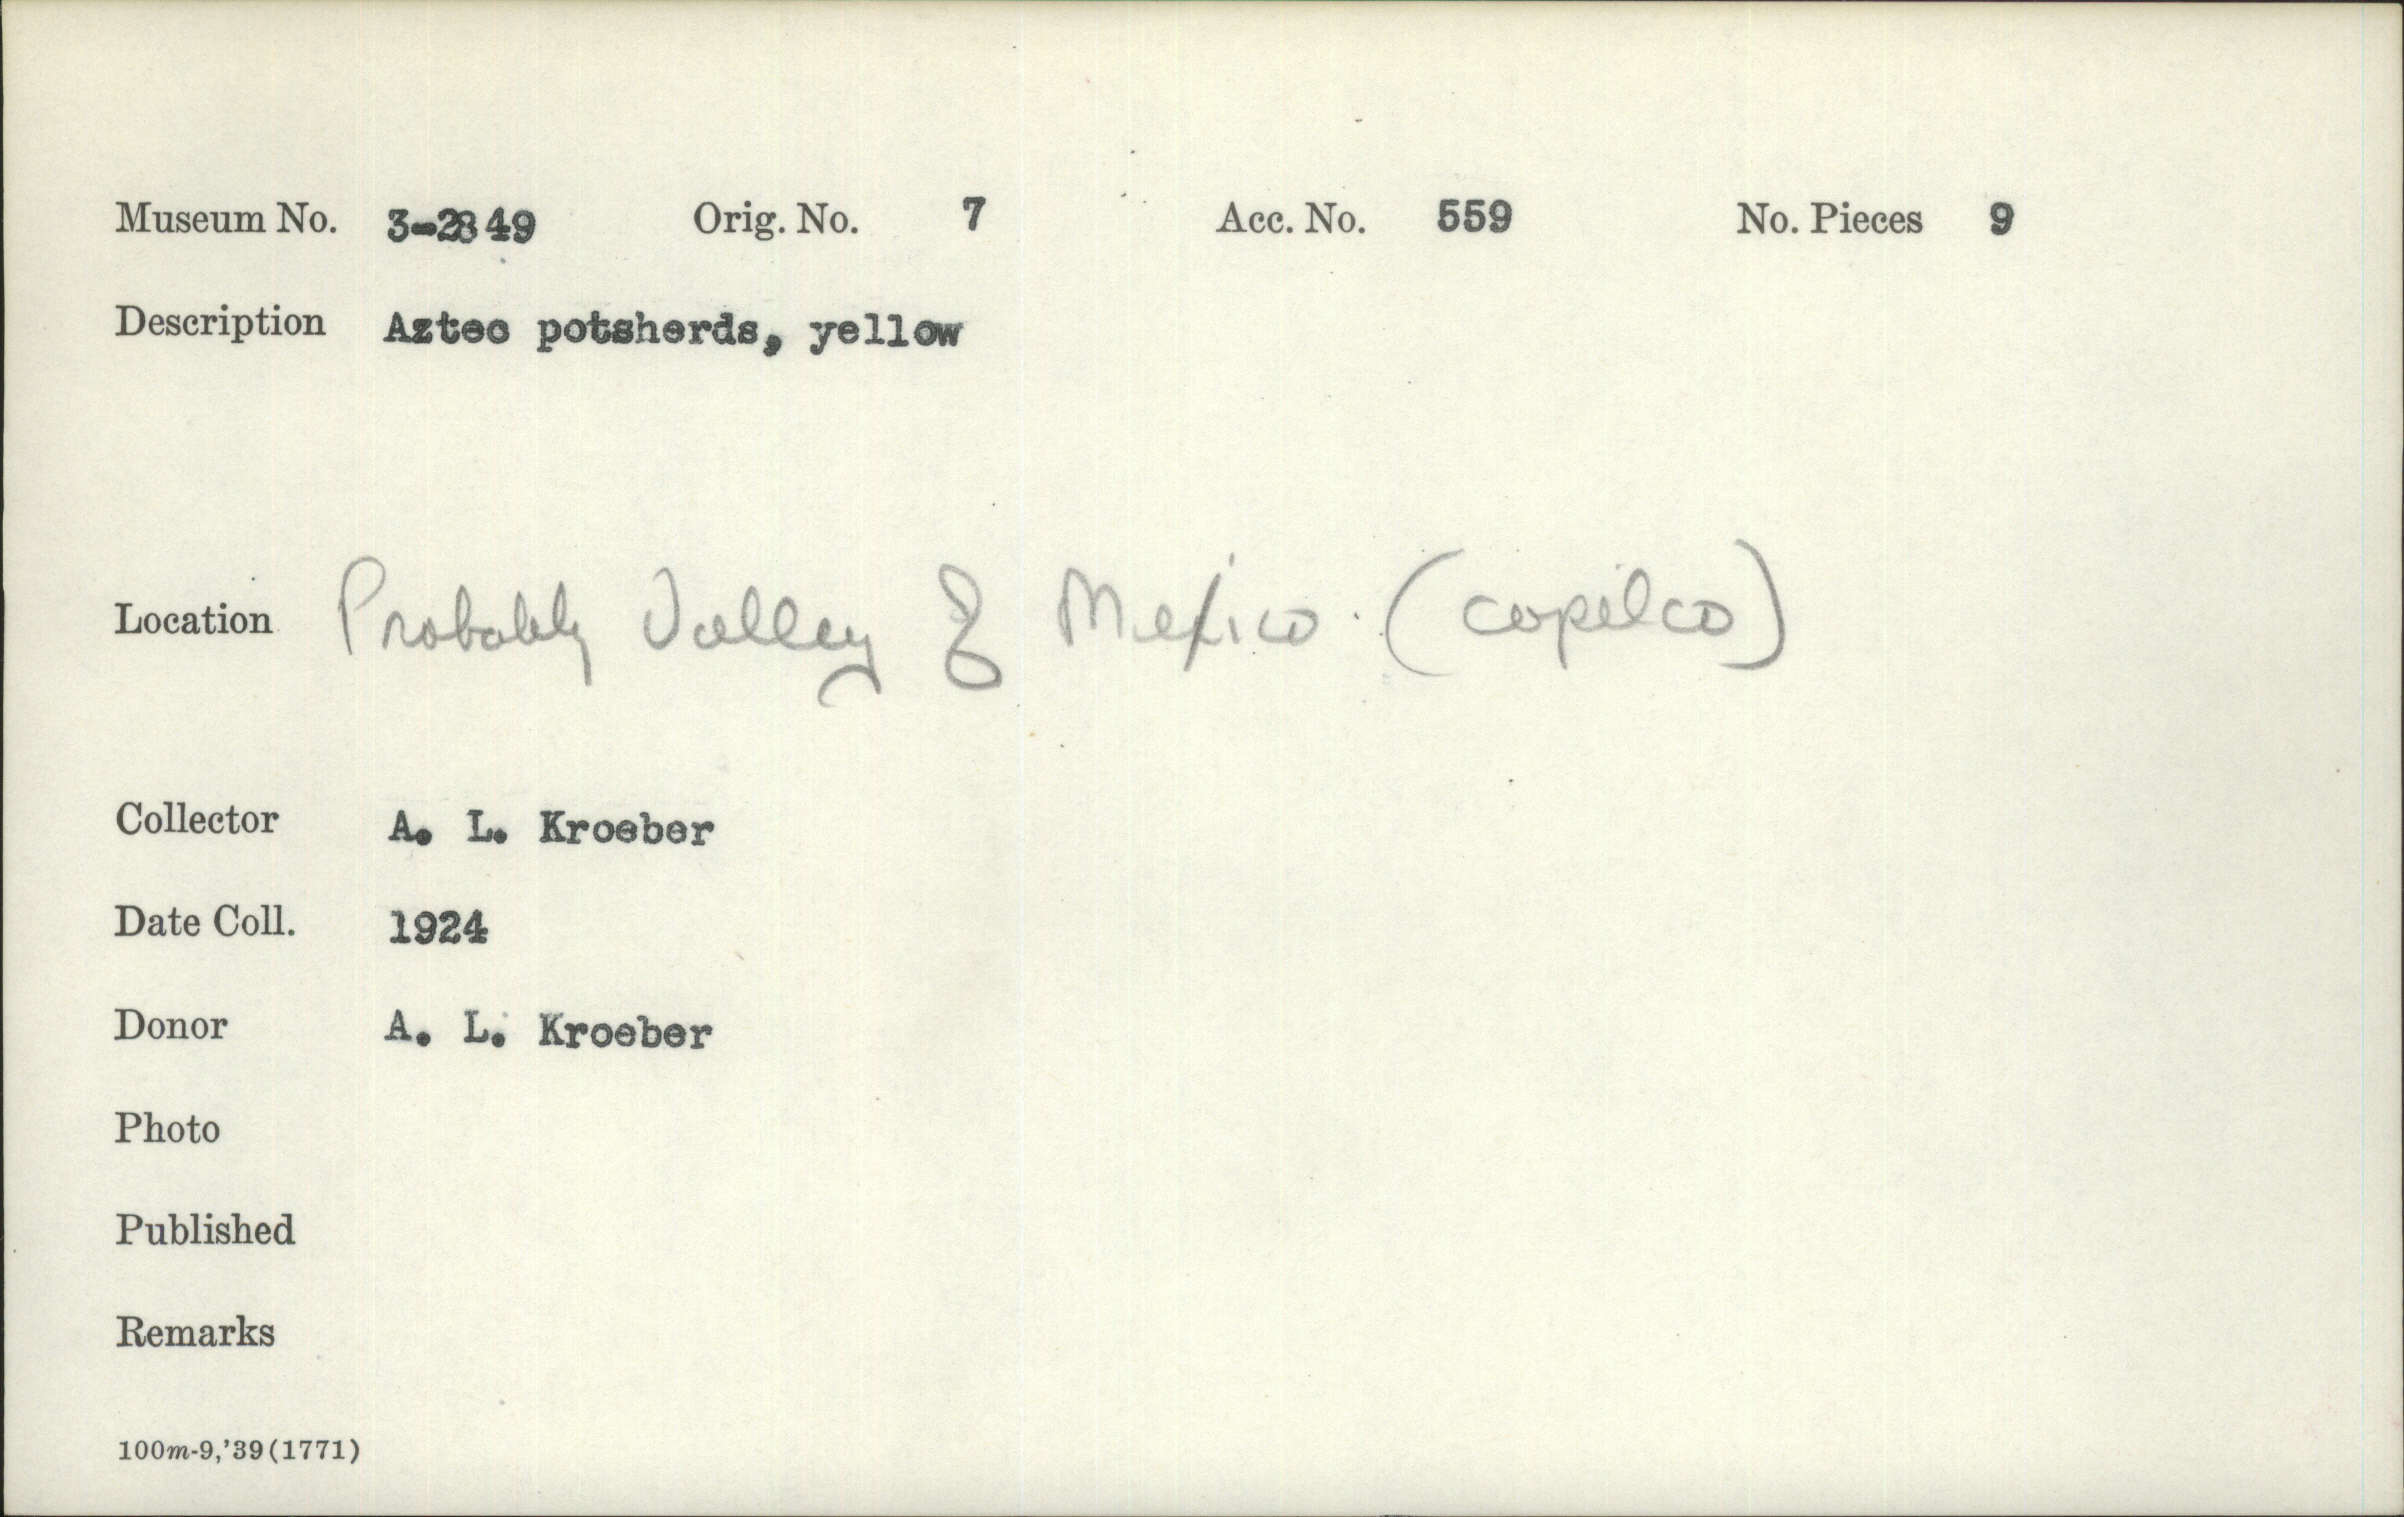 Museum No. 3-2849 Orig. No. 7 Acc. No. 559 No. Pieces 9
Description Aztec potsherds, yellow
Location Probably Valley of Mexico. (copilco)
Collector A. L. Kroeber
Date Coll. 1924
Donor A. L. Kroeber
Photo
Published
Remarks
100m-9,'39(1771)